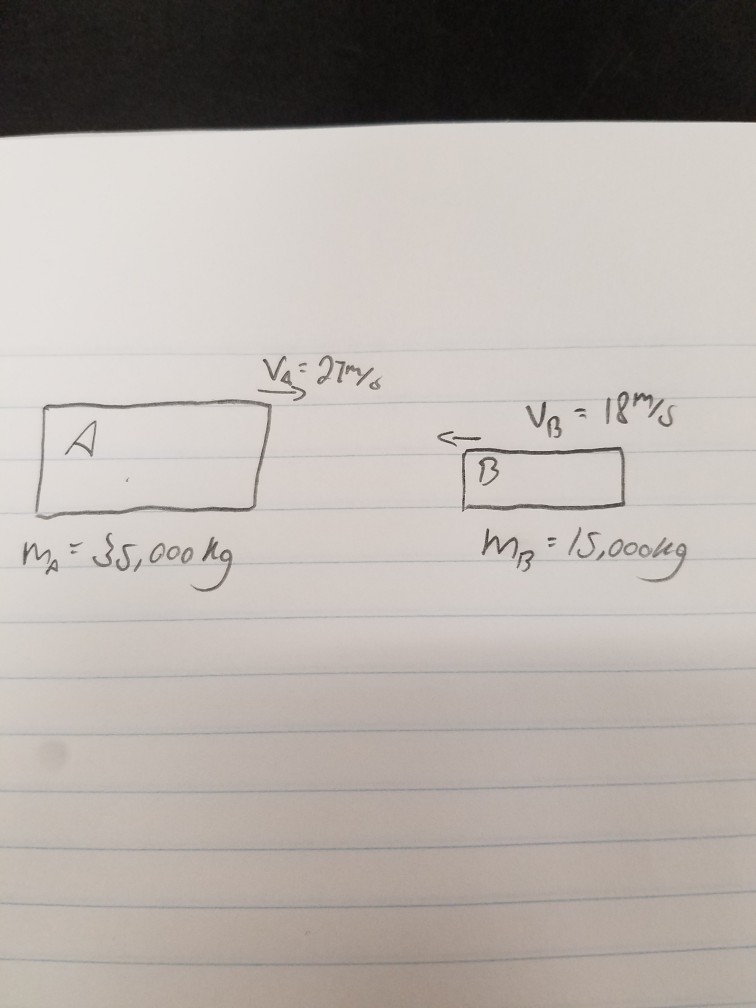 V_A = 27 m/s
A
V_B = 18 m/s
B
m_A = 35,000 kg
m_B = 15,000 kg